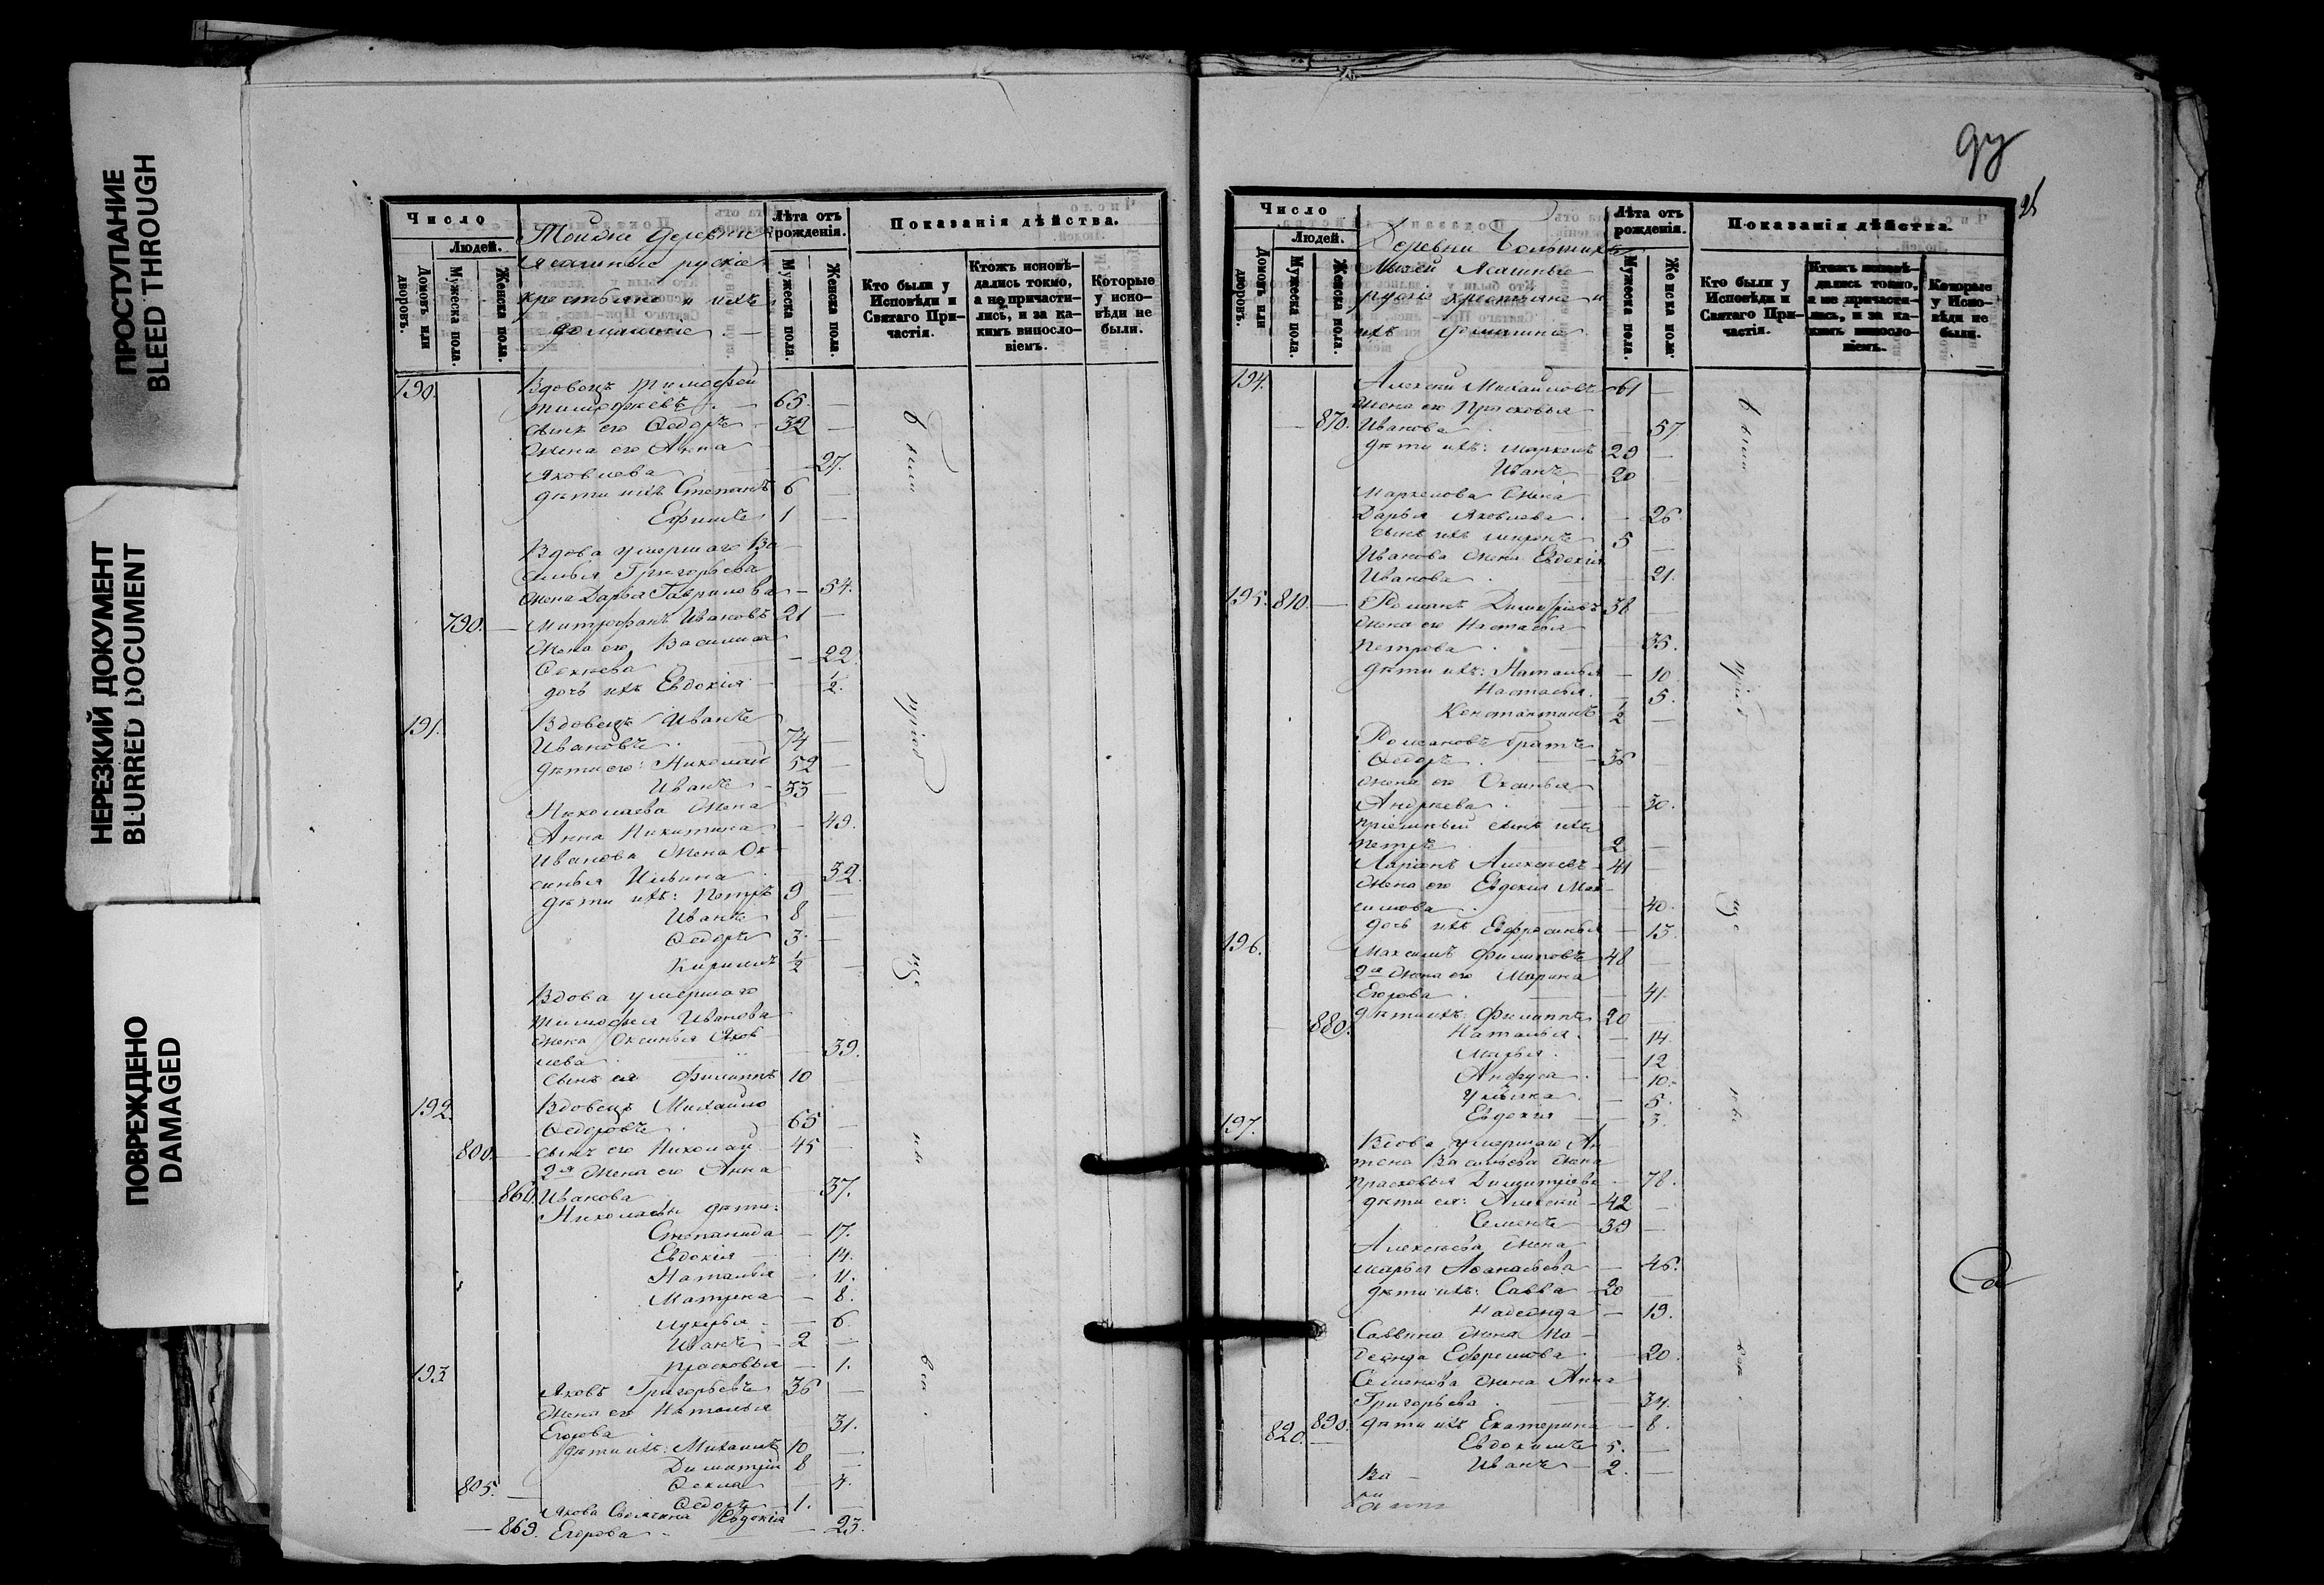 ПРОСТУПАНИЕ
BLEED THROUGH
НЕРЕЗКИЙ ДОКУМЕНТ
BLURRED DOCUMENT
ПОВРЕЖДЕНО
DAMAGED
Число
Людей.
Домовъ или дворовъ.
Мужеска пола.
Женска пола.
Тойже деревни
ясашные руские
крестьяне и ихъ
домашние
Лѣта отъ рожденія.
Мужеска пола.
Женска пола.
Показанія дѣйства.
Кто были у Исповѣди и Святаго Причастія.
Ктожъ исповѣдались токмо, а не причастились, и за какимъ винословіемъ.
Которые у исповѣди не были.
190. Вдовецъ Тимофей
Тимофеевъ 65. —
сынъ его Ѳедоръ 32 —
Жена его Анна
Яковлева — 27.
дѣти ихъ Степанъ 6 —
Ефимъ 1 —
Вдова умершаго Ва-
силья Григорьева
жена Дарья Гаврилова — 54.
790. — Митрофанъ Ивановъ 21 —
Жена его Василиса
— 22.
дочь ихъ Евдокія — ½.
191. Вдовецъ Иванъ
Ивановъ 74 —
дѣти его: Николай 52 —
Иванъ 33 —
Николаева жена
Анна Никитина — 49.
Иванова жена Ок-
синья Ильина 32.
дѣти ихъ: Петръ 9 —
Иванъ 8 —
Ѳедоръ 3. —
Кирилъ ½ —
Вдова умершаго
Тимофея Иванова
жена Оксинья Яков-
лева — 39.
сынъ ея Филиппъ 10 —
192. Вдовецъ Михайло
Ѳедоровъ 65 —
800. — сынъ его Николай 45 —
2я жена его Анна
860. Иванова 37.
Николаевы дѣти:
Степанида — 17.
Евдокія — 14.
Наталья — 11.
Матрена — 8.
Лукерья — 6.
Иванъ 2 —
Прасковья — 1.
193. Яковъ Григорьевъ 36 —
Жена его Наталья
Егорова 31.
дѣти ихъ: Михаилъ 10 —
Димитрій 8 —
Ѳекла — 4.
805. — Ѳедоръ 1. —
Якова Евдокія
— 869. Егорова — 23.
Число
Людей.
Домовъ или дворовъ.
Мужеска пола.
Женска пола.
Деревни
ясашные
руские крестьяне и
ихъ домашние
Лѣта отъ рожденія.
Мужеска пола.
Женска пола.
Показанія дѣйства.
Кто были у Исповѣди и Святаго Причастія.
Ктожъ исповѣдались токмо, а не причастились, и за какимъ винословіемъ.
Которые у Исповѣди не были.
194. Алексей Михайловъ 61 —
Жена его Прасковья
— 870. Иванова 57
дѣти ихъ: Маркелъ 29 —
Иванъ 20 —
Маркелова жена
Дарья Яковлева — 26
сынъ ихъ Миронъ 5 —
Иванова жена Евдокія
Иванова — 21.
195. 810. — Романъ Димитріевъ 38 —
Жена его Настасья
Петрова — 35.
дѣти ихъ: Наталья — 10.
Настасья — 5.
Константинъ ½ —
Романовъ братъ
Ѳедоръ 36 —
жена его Оксинья
Андреева — 30.
пріемный сынъ ихъ
Петръ 2 —
Ларіонъ Алексеевъ 41 —
Жена его Евдокия Мак-
симова — 40.
дочь ихъ Евфросинья — 13.
196. Максимъ Филиповъ 48 —
2я жена его Марина
Егорова — 41.
дѣти ихъ: Филиппъ 20 —
880. Наталья — 14.
Марья — 12
Анфуса — 10.
Ульяна — 5.
Евдокія — 3.
197. Вдова умершаго Ан-
тона Васильева жена
Прасковья Димитріева — 78.
дѣти ея: Алексей 42 —
Семенъ 39 —
Алексеева жена
Марья Афанасьева — 46.
дѣти ихъ: Савва 20 —
Надежда — 19.
Саввина жена На-
дежда Ефремова — 20.
Семенова жена Анна
Григорьева — 34.
890. дѣти ихъ Екатерина — 8.
820. — Евдокимъ 5. —
Иванъ 2. —